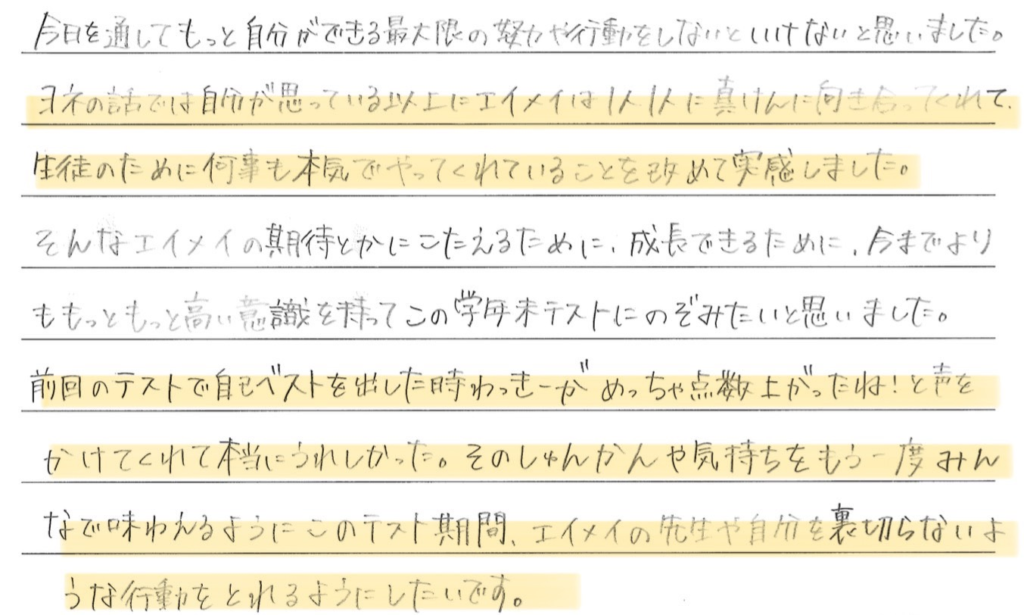 今日を通してもっと自分ができる最大限の努力や行動をしないといけないと思いました。
ヨネの話では自分が思っている以上にエイメイは1人1人に真けんに向き合ってくれて、
生徒のために何事も本気でやってくれていることを改めて実感しました。
そんなエイメイの期待とかにこたえるために、成長できるために、今までより
ももっともっと高い意識を持ってこの学年末テストにのぞみたいと思いました。
前回のテストで自己ベストを出した時わっきーがめっちゃ点数上がったね!と声を
かけてくれて本当にうれしかった。そのしゅんかんや気持ちをもう一度みん
なで味わえるようにこのテスト期間、エイメイの先生や自分を裏切らないよ
うな行動をとれるようにしたいです。